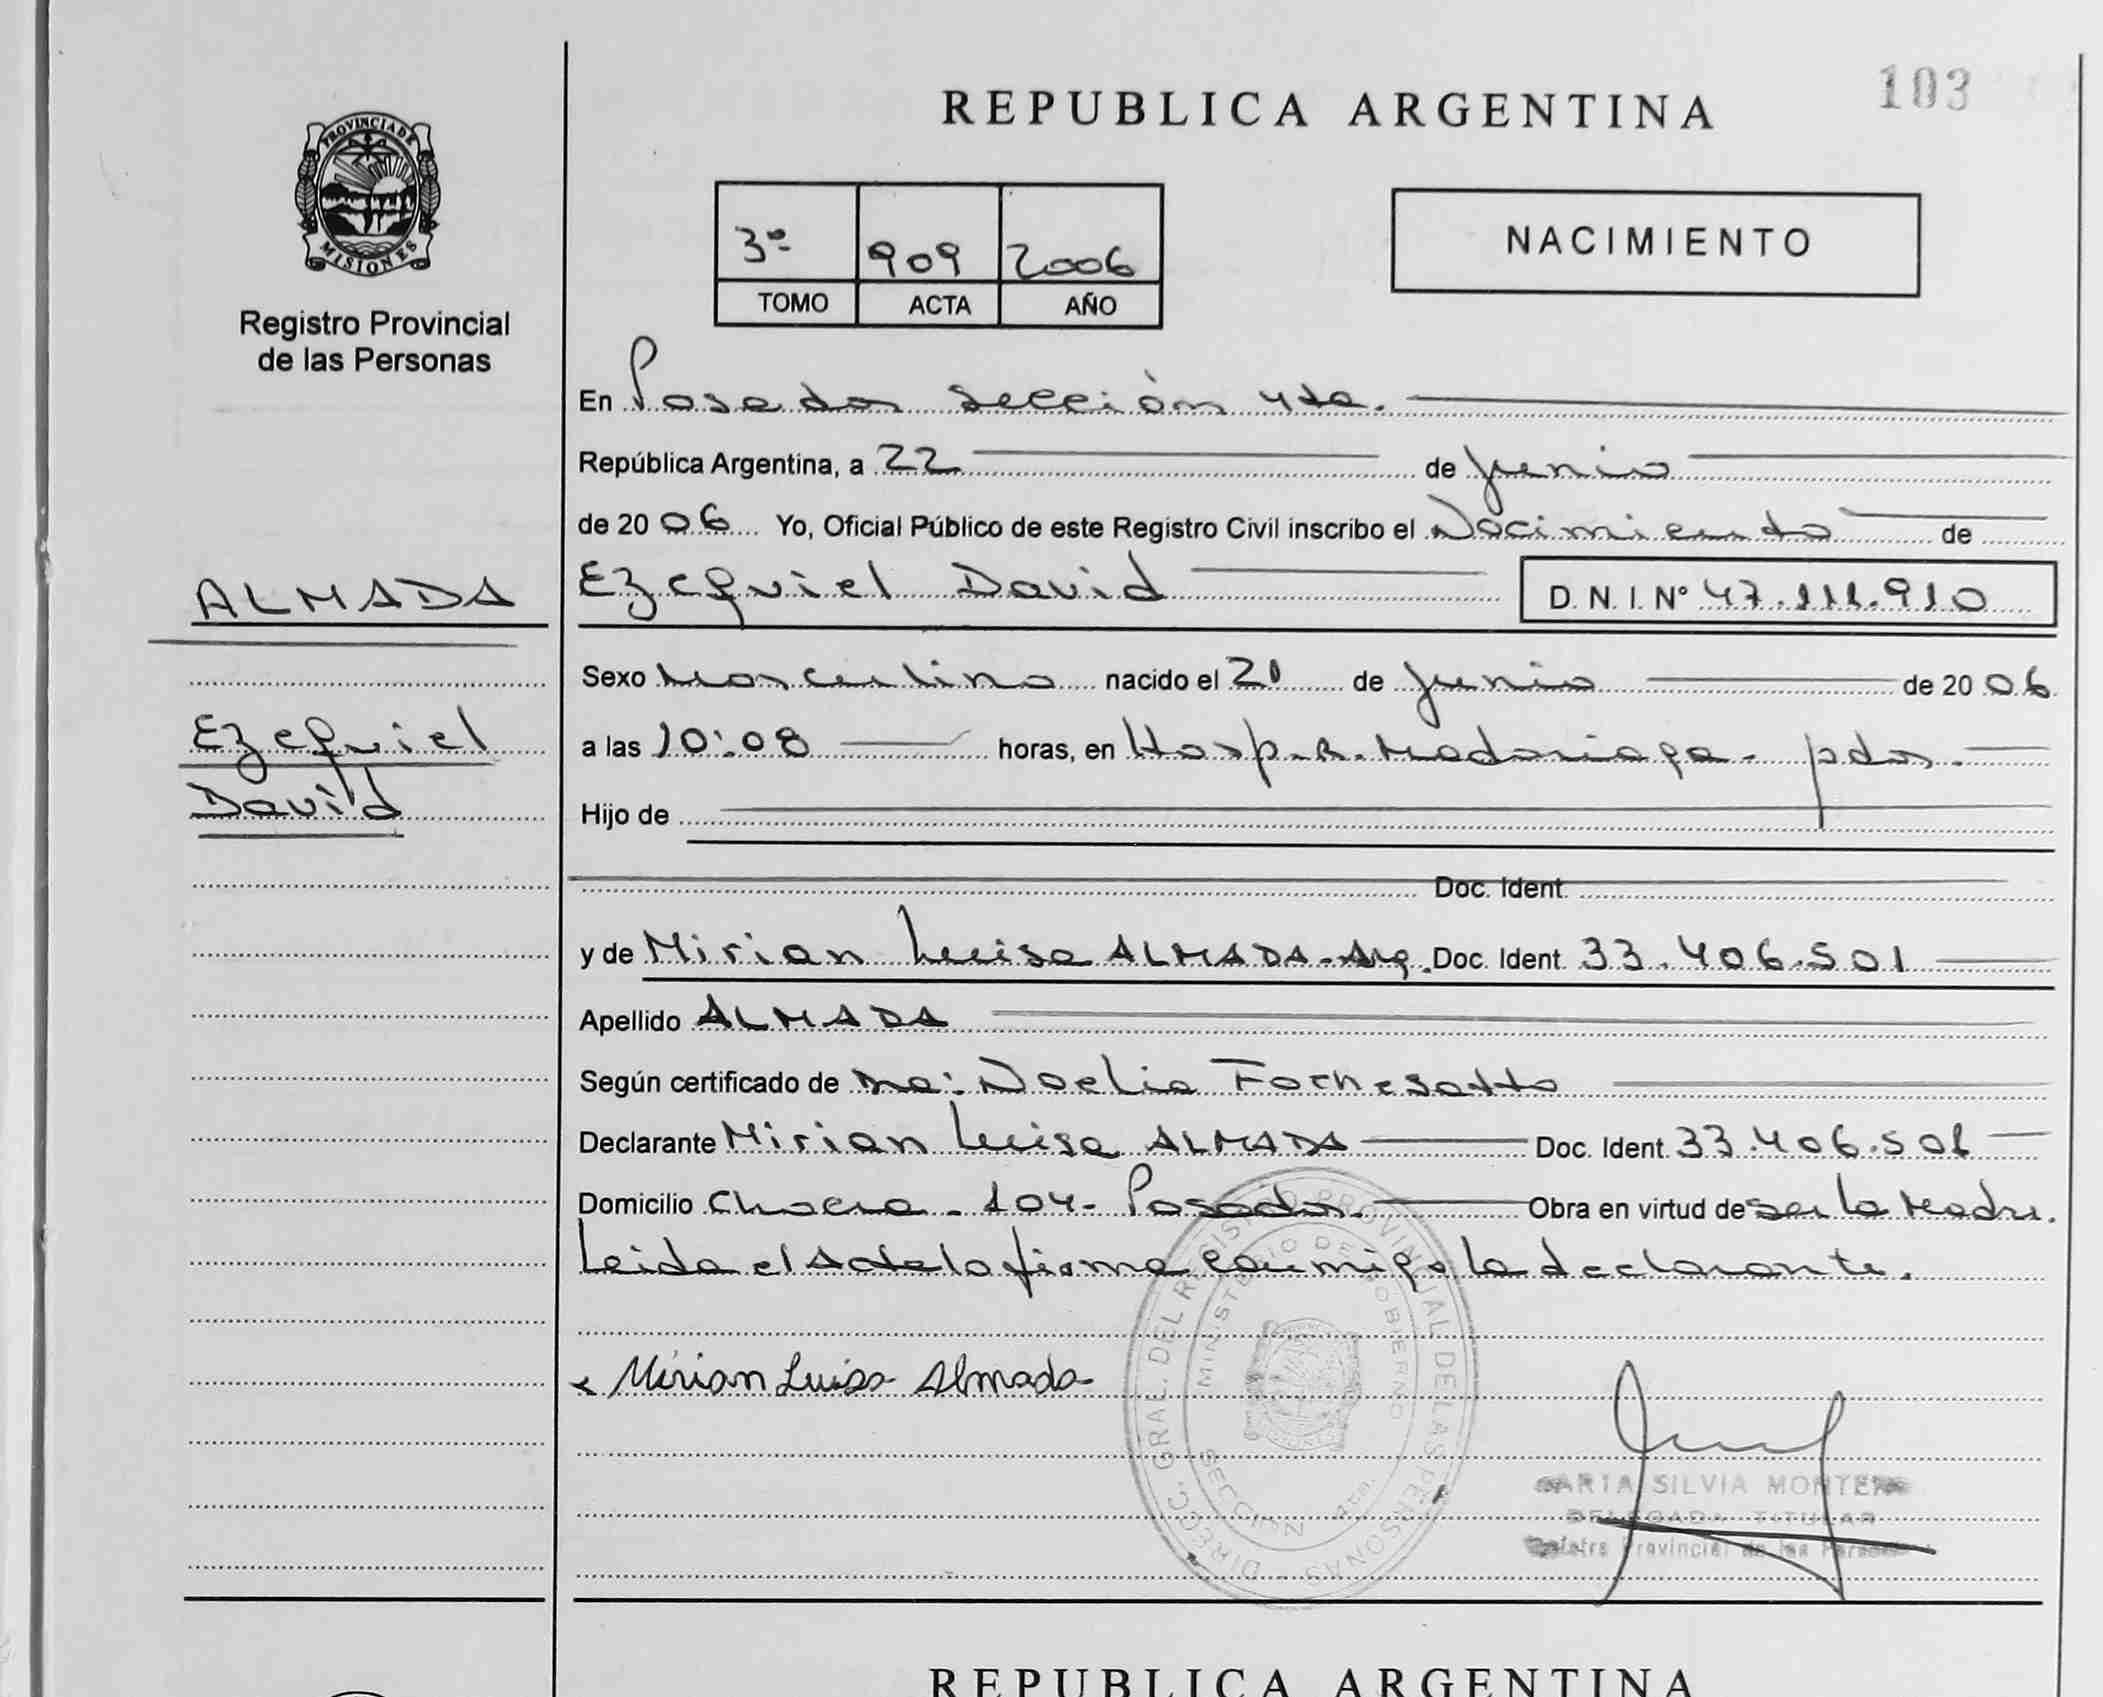 103
REPUBLICA ARGENTINA
PROVINCIA DE
MISIONES
Registro Provincial
de las Personas
3º 909 2006
TOMO ACTA AÑO
NACIMIENTO
En Posadas sección 4ta.
República Argentina, a 22 de junio
de 2006 Yo, Oficial Público de este Registro Civil inscribo el Nacimiento de
ALMADA
Ezequiel David D. N. I. Nº 47.111.910
Sexo Masculino nacido el 20 de junio de 2006
Ezequiel
David
a las 10:08 horas, en Hosp. R. Madariaga - pdas.
Hijo de
Doc. Ident.
y de Mirian Luisa ALMADA - Arg. Doc. Ident. 33.406.501
Apellido ALMADA
Según certificado de Noelia Fornesatto
Declarante Mirian Luisa ALMADA Doc. Ident. 33.406.501
Domicilio Chacra - 104 - Posadas. Obra en virtud de ser la Madre.
Leida el Acta la firma conmigo la declarante.
Mirian Luisa Almada
DIRECC. GRAL. DEL REGISTRO PROVINCIAL DE LAS PERSONAS
MINISTERIO DE GOBIERNO
SECCION 4ta.
SILVIA
DELEGADA TITULAR
Provincial de las
REPUBLICA ARGENTINA